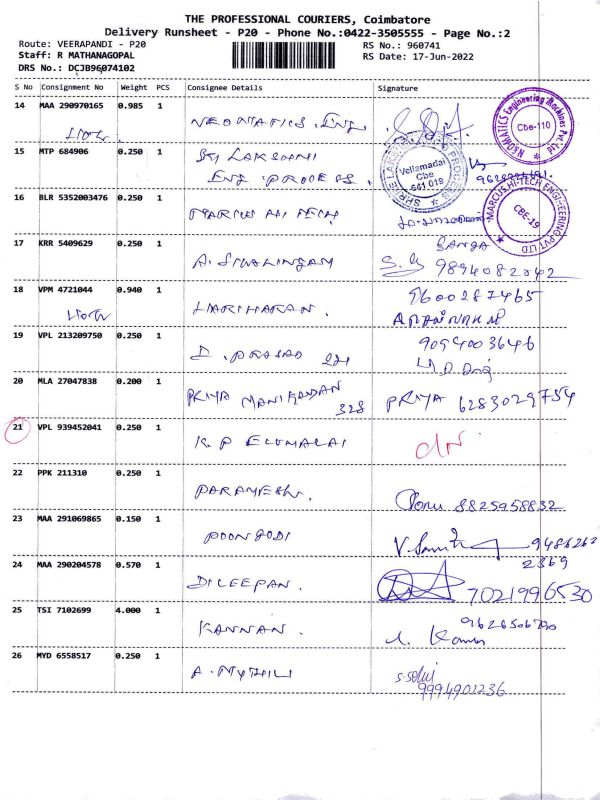 THE PROFESSIONAL COURIERS, Coimbatore
Delivery Runsheet - P20 - Phone No.:0422-3505555 - Page No.:2
Route: VEERAPANDI - P20
RS No.: 960741
Staff: R MATHANAGOPAL
RS Date: 17-Jun-2022
DRS No.: DCJB96074102
S No Consignment No Weight PCS Consignee Details Signature
14 MAA 290970165 0.985 1 NEOMATICS . ENG
NEOMATICS Engineering Machines Pvt. Ltd
Cbe-110
15 MTP 684906 0.250 1 SRI LAKSHMI
ENG PROCESS.
Vellamadai
Cbe
641 019
16 BLR 5352003476 0.250 1 MARCUS HI TECH
MARCUS HI-TECH ENGINEERING PVT LTD
CBE-19
17 KRR 5409629 0.250 1 A. SIVALINGAM
GANGA
9894082242
18 VPM 4721044 0.940 1 HARIHARAN.
9600287465
19 VPL 213209750 0.250 1 D. PRASAD 221
9094003646
20 MLA 27047838 0.200 1 PRIYA MANIKANDAN
328
PRIYA 6283029754
21 VPL 939452041 0.250 1 K. P ELUMALAI
22 PPK 211310 0.250 1 PARAMESH.
8825958832
23 MAA 291069865 0.150 1 POONGODI
9486262
2369
24 MAA 290204578 0.570 1 DILEEPAN.
7021996530
25 TSI 7102699 4.000 1 KANNAN.
9626506790
26 MYD 6558517 0.250 1 A. MYTHILI
9994901236